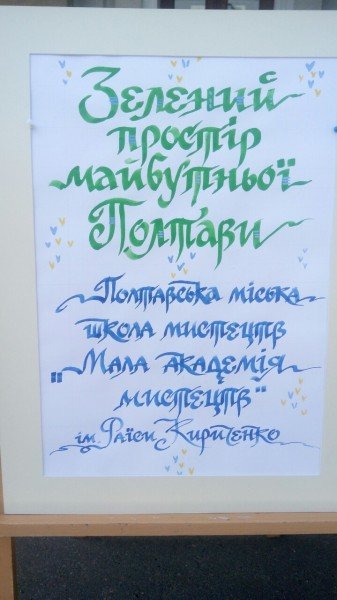 Зелений
простір
майбутньої
Полтави
Полтавська міська
школа мистецтв
"Мала академія
мистецтв"
ім. Раїси Кириченко